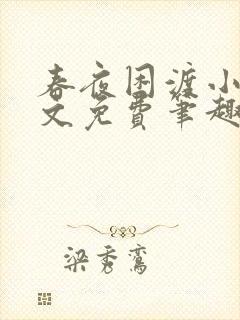 春夜困渡小
文免费笔趣
梁秀鸾